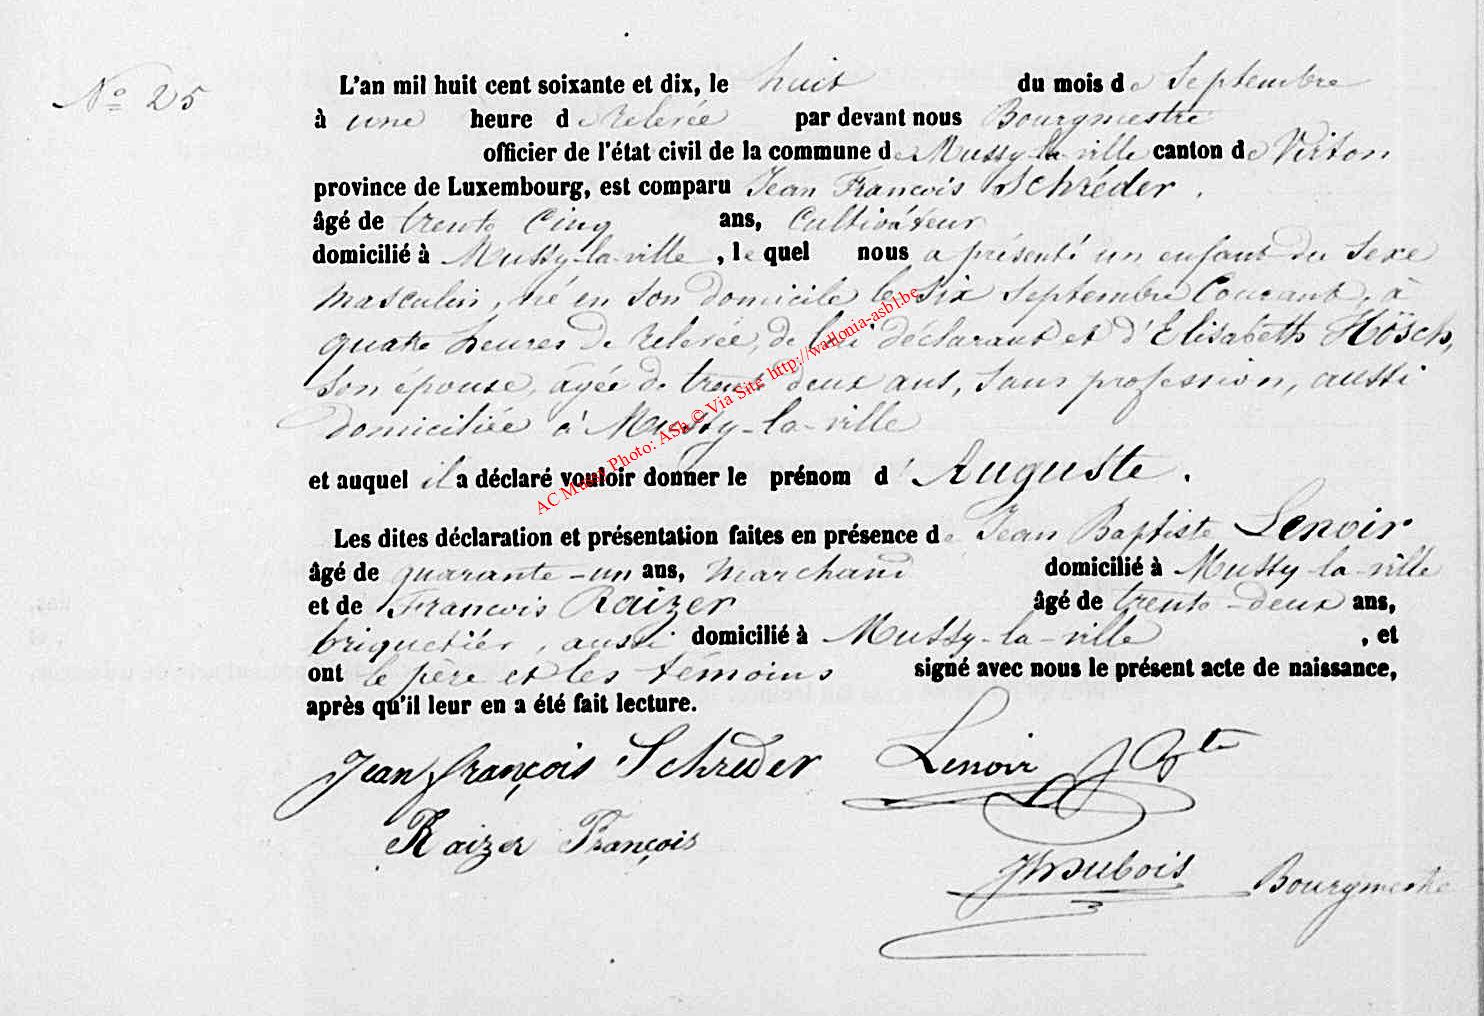 N° 25
L'an mil huit cent soixante et dix, le huit du mois de Septembre
à une heure de relevée par devant nous Bourgmestre
officier de l'état civil de la commune de Mussy-la-ville canton de Virton
province de Luxembourg, est comparu Jean François Schréder.
âgé de trente cinq ans, Cultivateur
domicilié à Mussy-la-ville, le quel nous a présenté un enfant du sexe
masculin, né en son domicile le six Septembre Courant, à
quatre heures de relevée, de lui déclarant et d'Elisabeth Hösch,
son épouse, âgée de trente deux ans, sans profession, aussi
domiciliée à Mussy-la-ville
et auquel il a déclaré vouloir donner le prénom d'Auguste.
Les dites déclaration et présentation faites en présence de Jean Baptiste Lenoir
âgé de quarante-un ans, marchand domicilié à Mussy-la-ville
et de François Raizer âgé de trente-deux ans,
briquetier, aussi domicilié à Mussy-la-ville, et
ont le père et les témoins signé avec nous le présent acte de naissance,
après qu'il leur en a été fait lecture.
Jean françois Schreder Lenoir J Bte
Raizer François
JhDubois Bourgmestre
AC Mussy Photo: ASh © Via Site http://wallonia-asbl.be